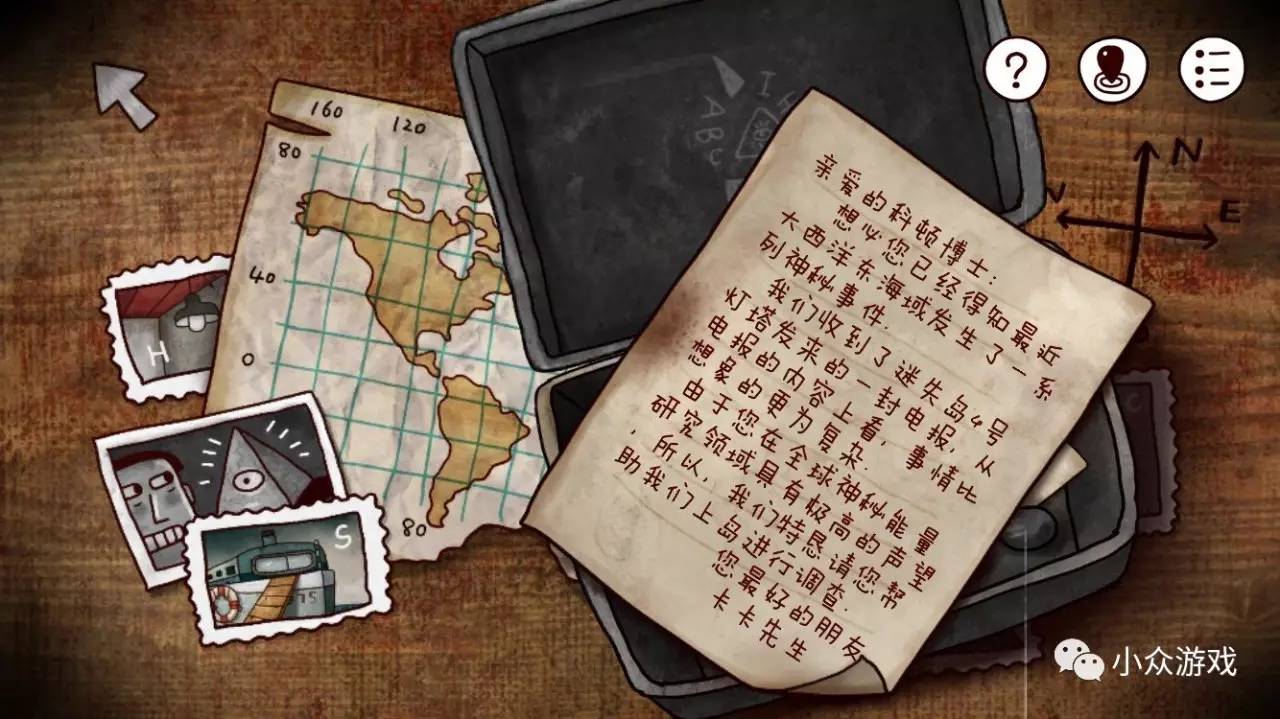 160
120
80
40
0
80
H
S
75
?
N
E
I
A
B
C
亲爱的科顿博士:
想必您已经得知最近
大西洋东海域发生了一系
列神秘事件.
我们收到了迷失岛4号
灯塔发来的一封电报, 从
电报的内容上看, 事情比
想象的更为复杂.
由于您在全球神秘能量
研究领域具有极高的声望
, 所以, 我们特恳请您帮
助我们上岛进行调查.
您最好的朋友
卡卡先生
小众游戏